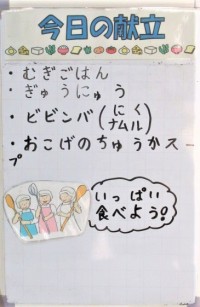 今日の献立
・むぎごはん
・ぎゅうにゅう
・ビビンバ(にく
ナムル)
・おこげのちゅうかス
プ
いっぱい
食べよう!